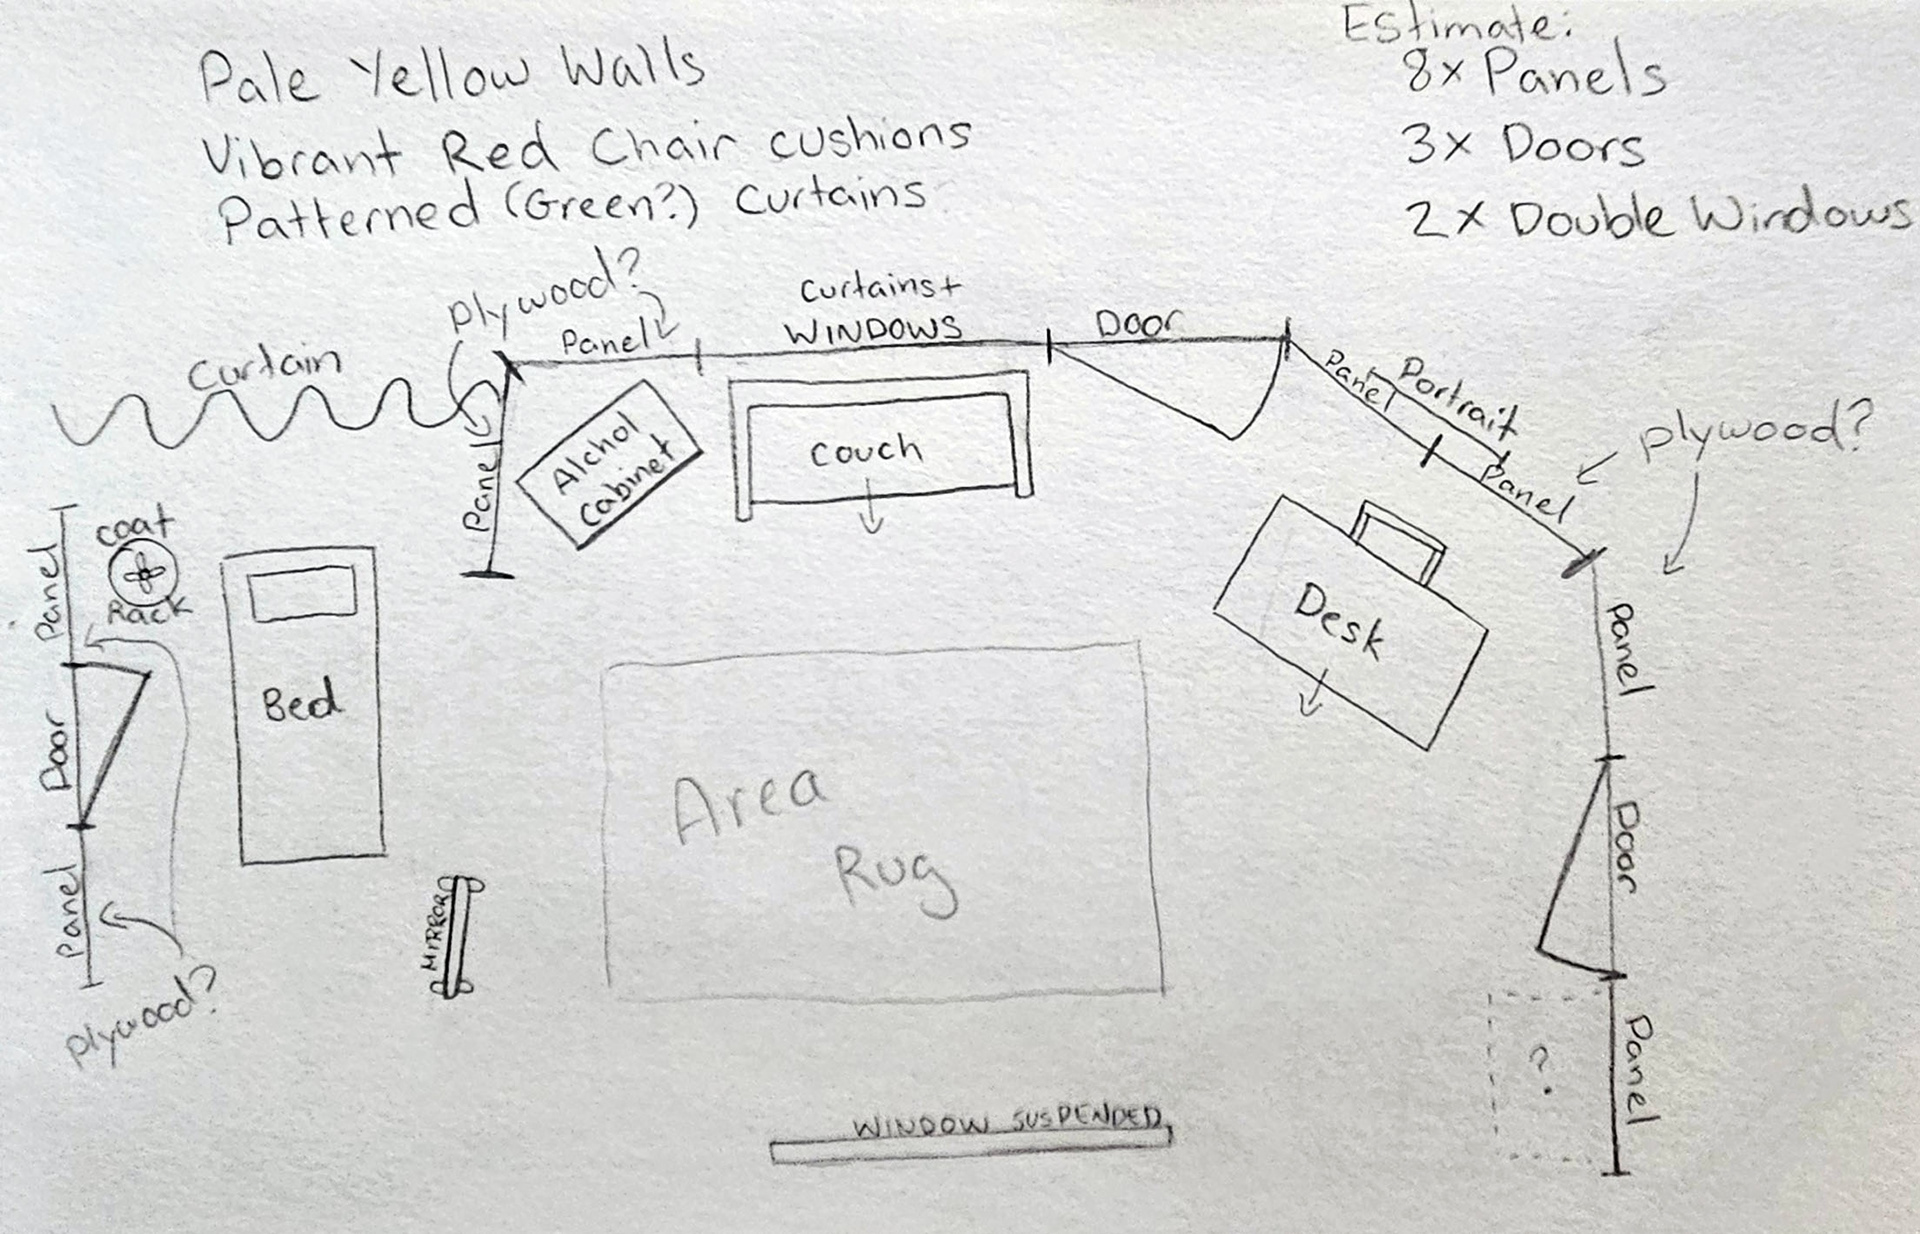 Pale Yellow Walls
Vibrant Red Chair cushions
Patterned (Green?) Curtains
Estimate:
8x Panels
3x Doors
2x Double Windows
plywood?
Panel
Curtains+
WINDOWS
Door
Curtain
Panel
Portrait
Panel
plywood?
Panel
Alchol
Cabinet
Couch
Desk
Panel
Coat
Rack
Panel
Door
Panel
plywood?
Bed
MIRROR
Area
Rug
Door
?
Panel
WINDOW SUSPENDED